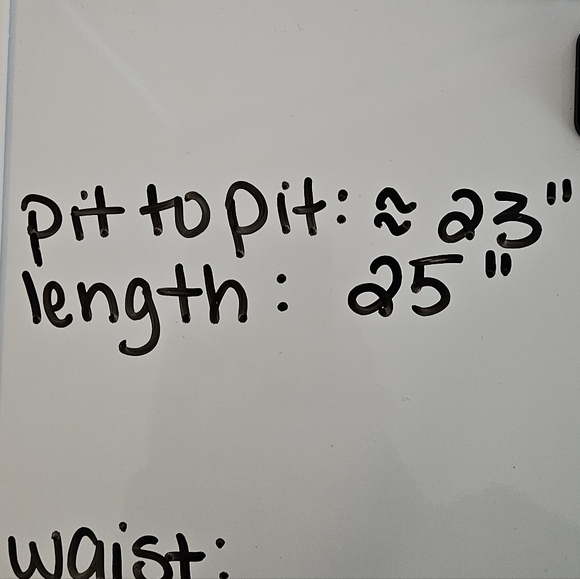 pit to pit: ≈ 23"
length: 25"
waist: